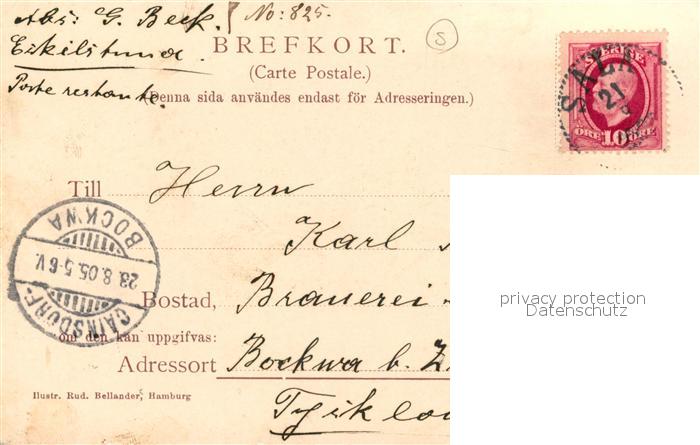 Abs: G. Beck. No: 825.
Eskilstuna.
Poste restante.
S
BREFKORT.
(Carte Postale.)
(Denna sida användes endast för Adresseringen.)
SVERIGE
SALA
21
8
ÖRE 10 ÖRE
Till Herrn
Karl
BOCKWA
23.8.05.5-6V.
CAINSDORF-
Bostad, Brauerei -
om den kan uppgifvas:
Adressort Bockwa b. Z
Tyskla
Illustr. Rud. Bellander, Hamburg
privacy protection
Datenschutz